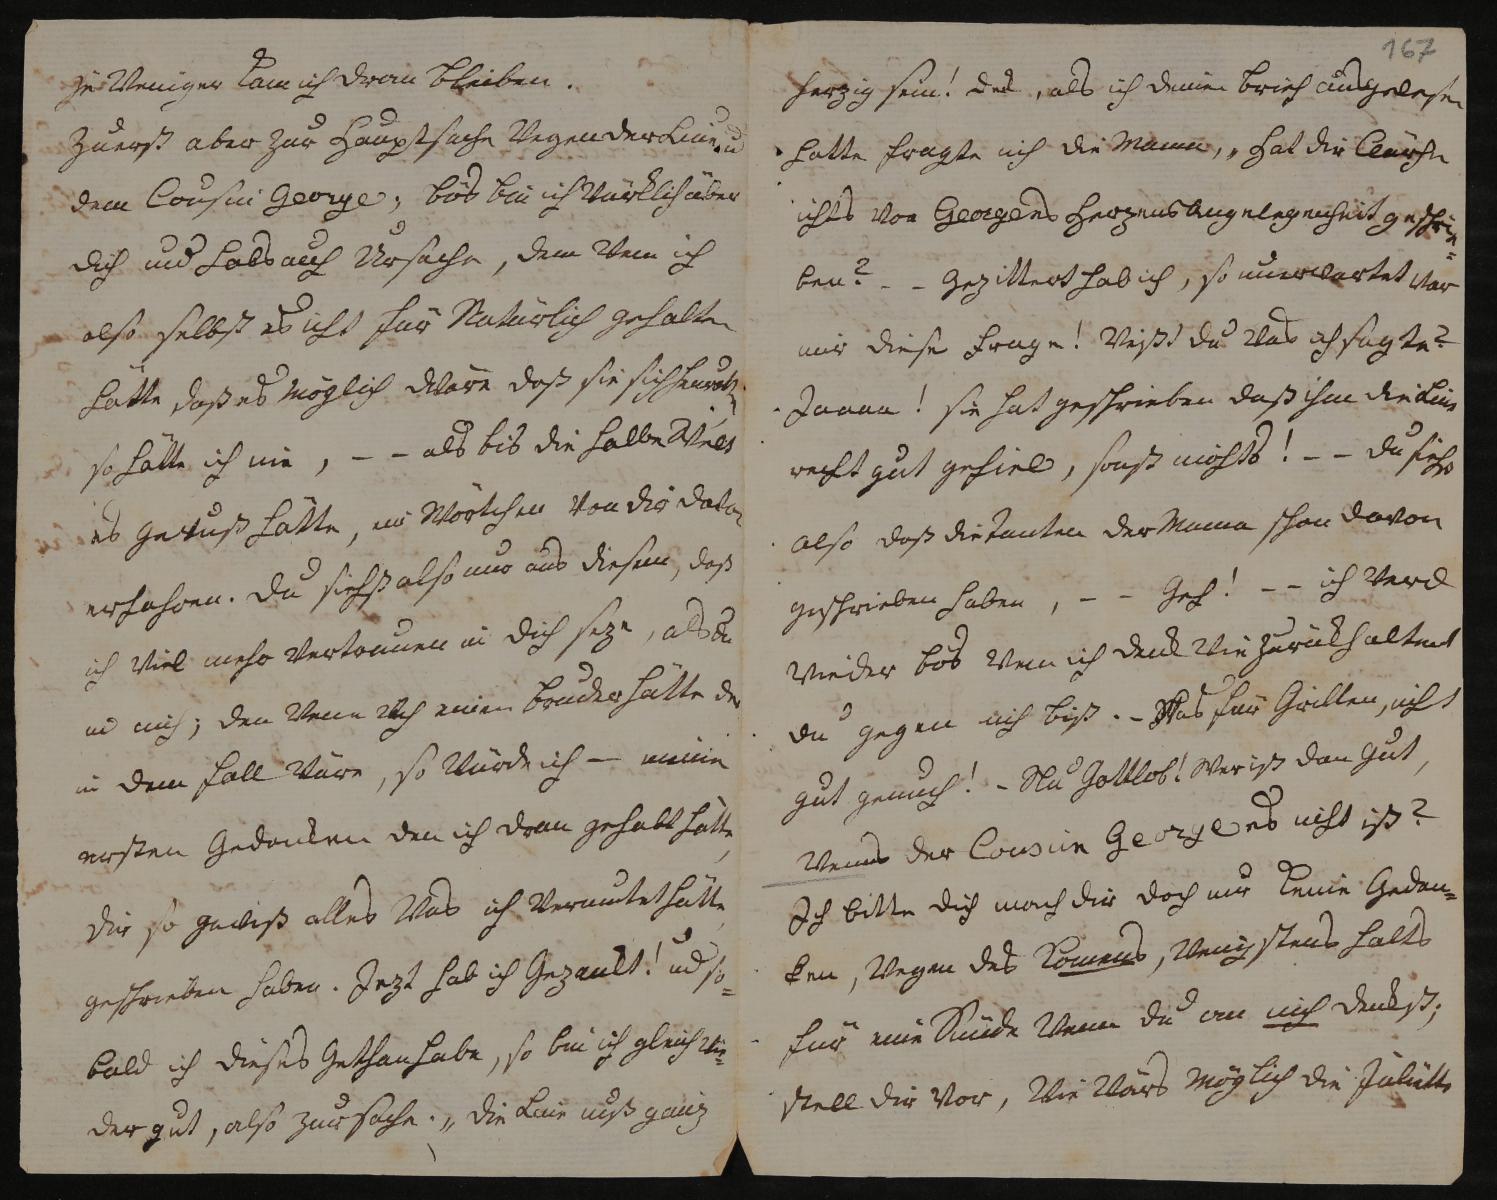 je weniger kan ich dran bleiben.
Zuerst aber zur Hauptsache wegen der Luie u
dem Cousin George; bös bin ich würklich über
dich und habs auch Ursache, denn wenn ich
also selbst es icht für Natürlich gehalten
hätte daß es möglich wäre daß sie sich heurath
so hätte ich nie, – – als bis die halbe Welt
es gewust hätte, ein Wörtchen von dir davon
erfahren. Du siehst also nur aus diesem, daß
ich viel mehr Vertrauen in dich seze, als du
in mich; den wenn ich einen Bruder hätte der
in dem fall wäre, so würde ich – meine
ersten Gedanken den ich dran gehabt hätte,
dir so gewiß alles was ich vermutet hätte,
geschrieben haben. Jezt hab ich Gezankt! und so=
bald ich dieses Gethan habe, so bin ich gleich wie=
der gut, also zur sache. „ die Luie muß ganz
167
herzig sein! den, als ich deinen brief ausgelesen
hatte fragte mich die Mama, „ hat dir Clärchen
ichts von Georgens Herzens Angelegenheit geschrie=
ben? – – Gezittert hab ich, so unerwartet war
mir diese Frage! Weißt du was ich sagte?
Jaaaa! sie hat geschrieben daß ihm die Luie
recht gut gefiel, sonst nichts! – – du siehst
also daß die Tanten der Mama schon davon
geschrieben haben, – – Geh! – – ich werd
wieder bös wenn ich denk wie zurückhaltent
du gegen mich bist. – Was für Grillen, nicht
gut genuch! – Nu Gottlob! Wer ist dan gut,
wenns der Cousin George es nicht ist?
Ich bitte dich mach dir doch nur keine Gedan=
ken, wegen des Komens, wenigstens halts
für eine Sünde wenn du an mich denkst;
stell dir vor, wie wärs möglich die Juliette